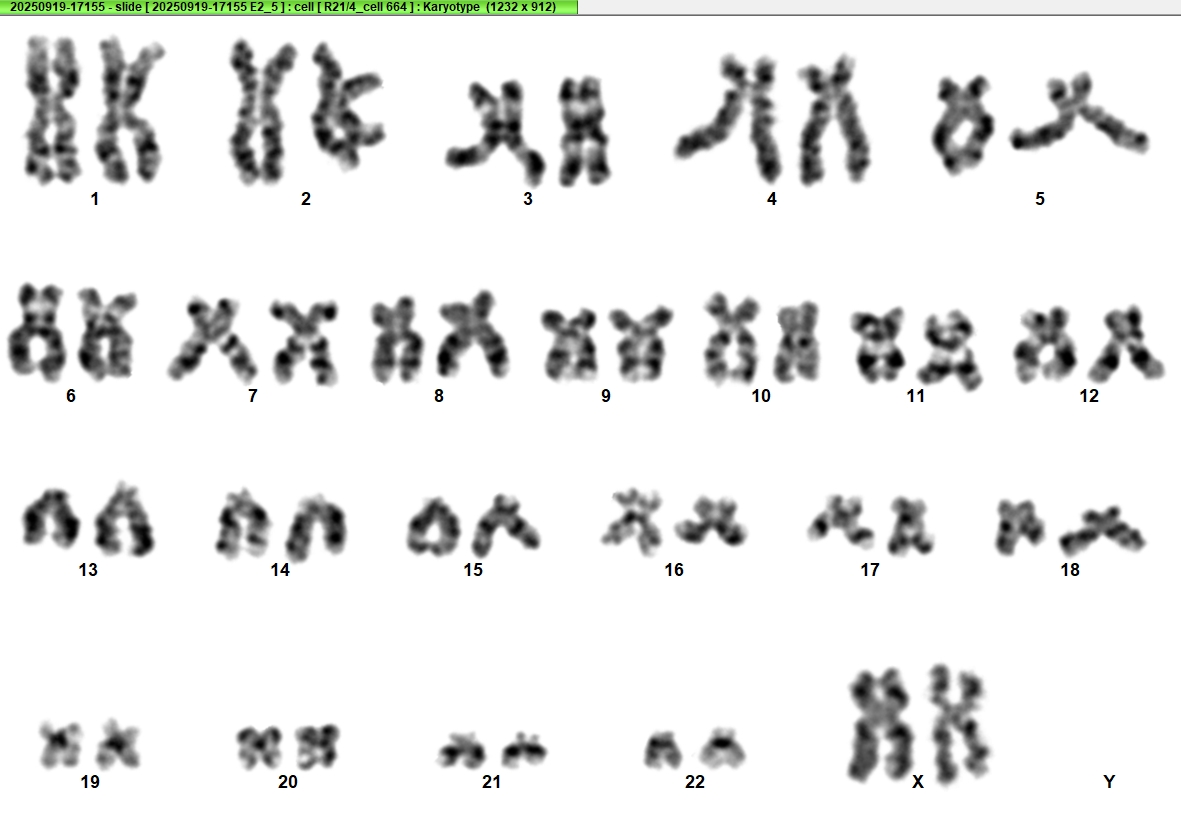 20250919-17155 - slide [ 20250919-17155 E2_5 ] : cell [ R21/4_cell 664 ] : Karyotype  (1232 x 912)
1 2 3 4 5
6 7 8 9 10 11 12
13 14 15 16 17 18
19 20 21 22 X Y